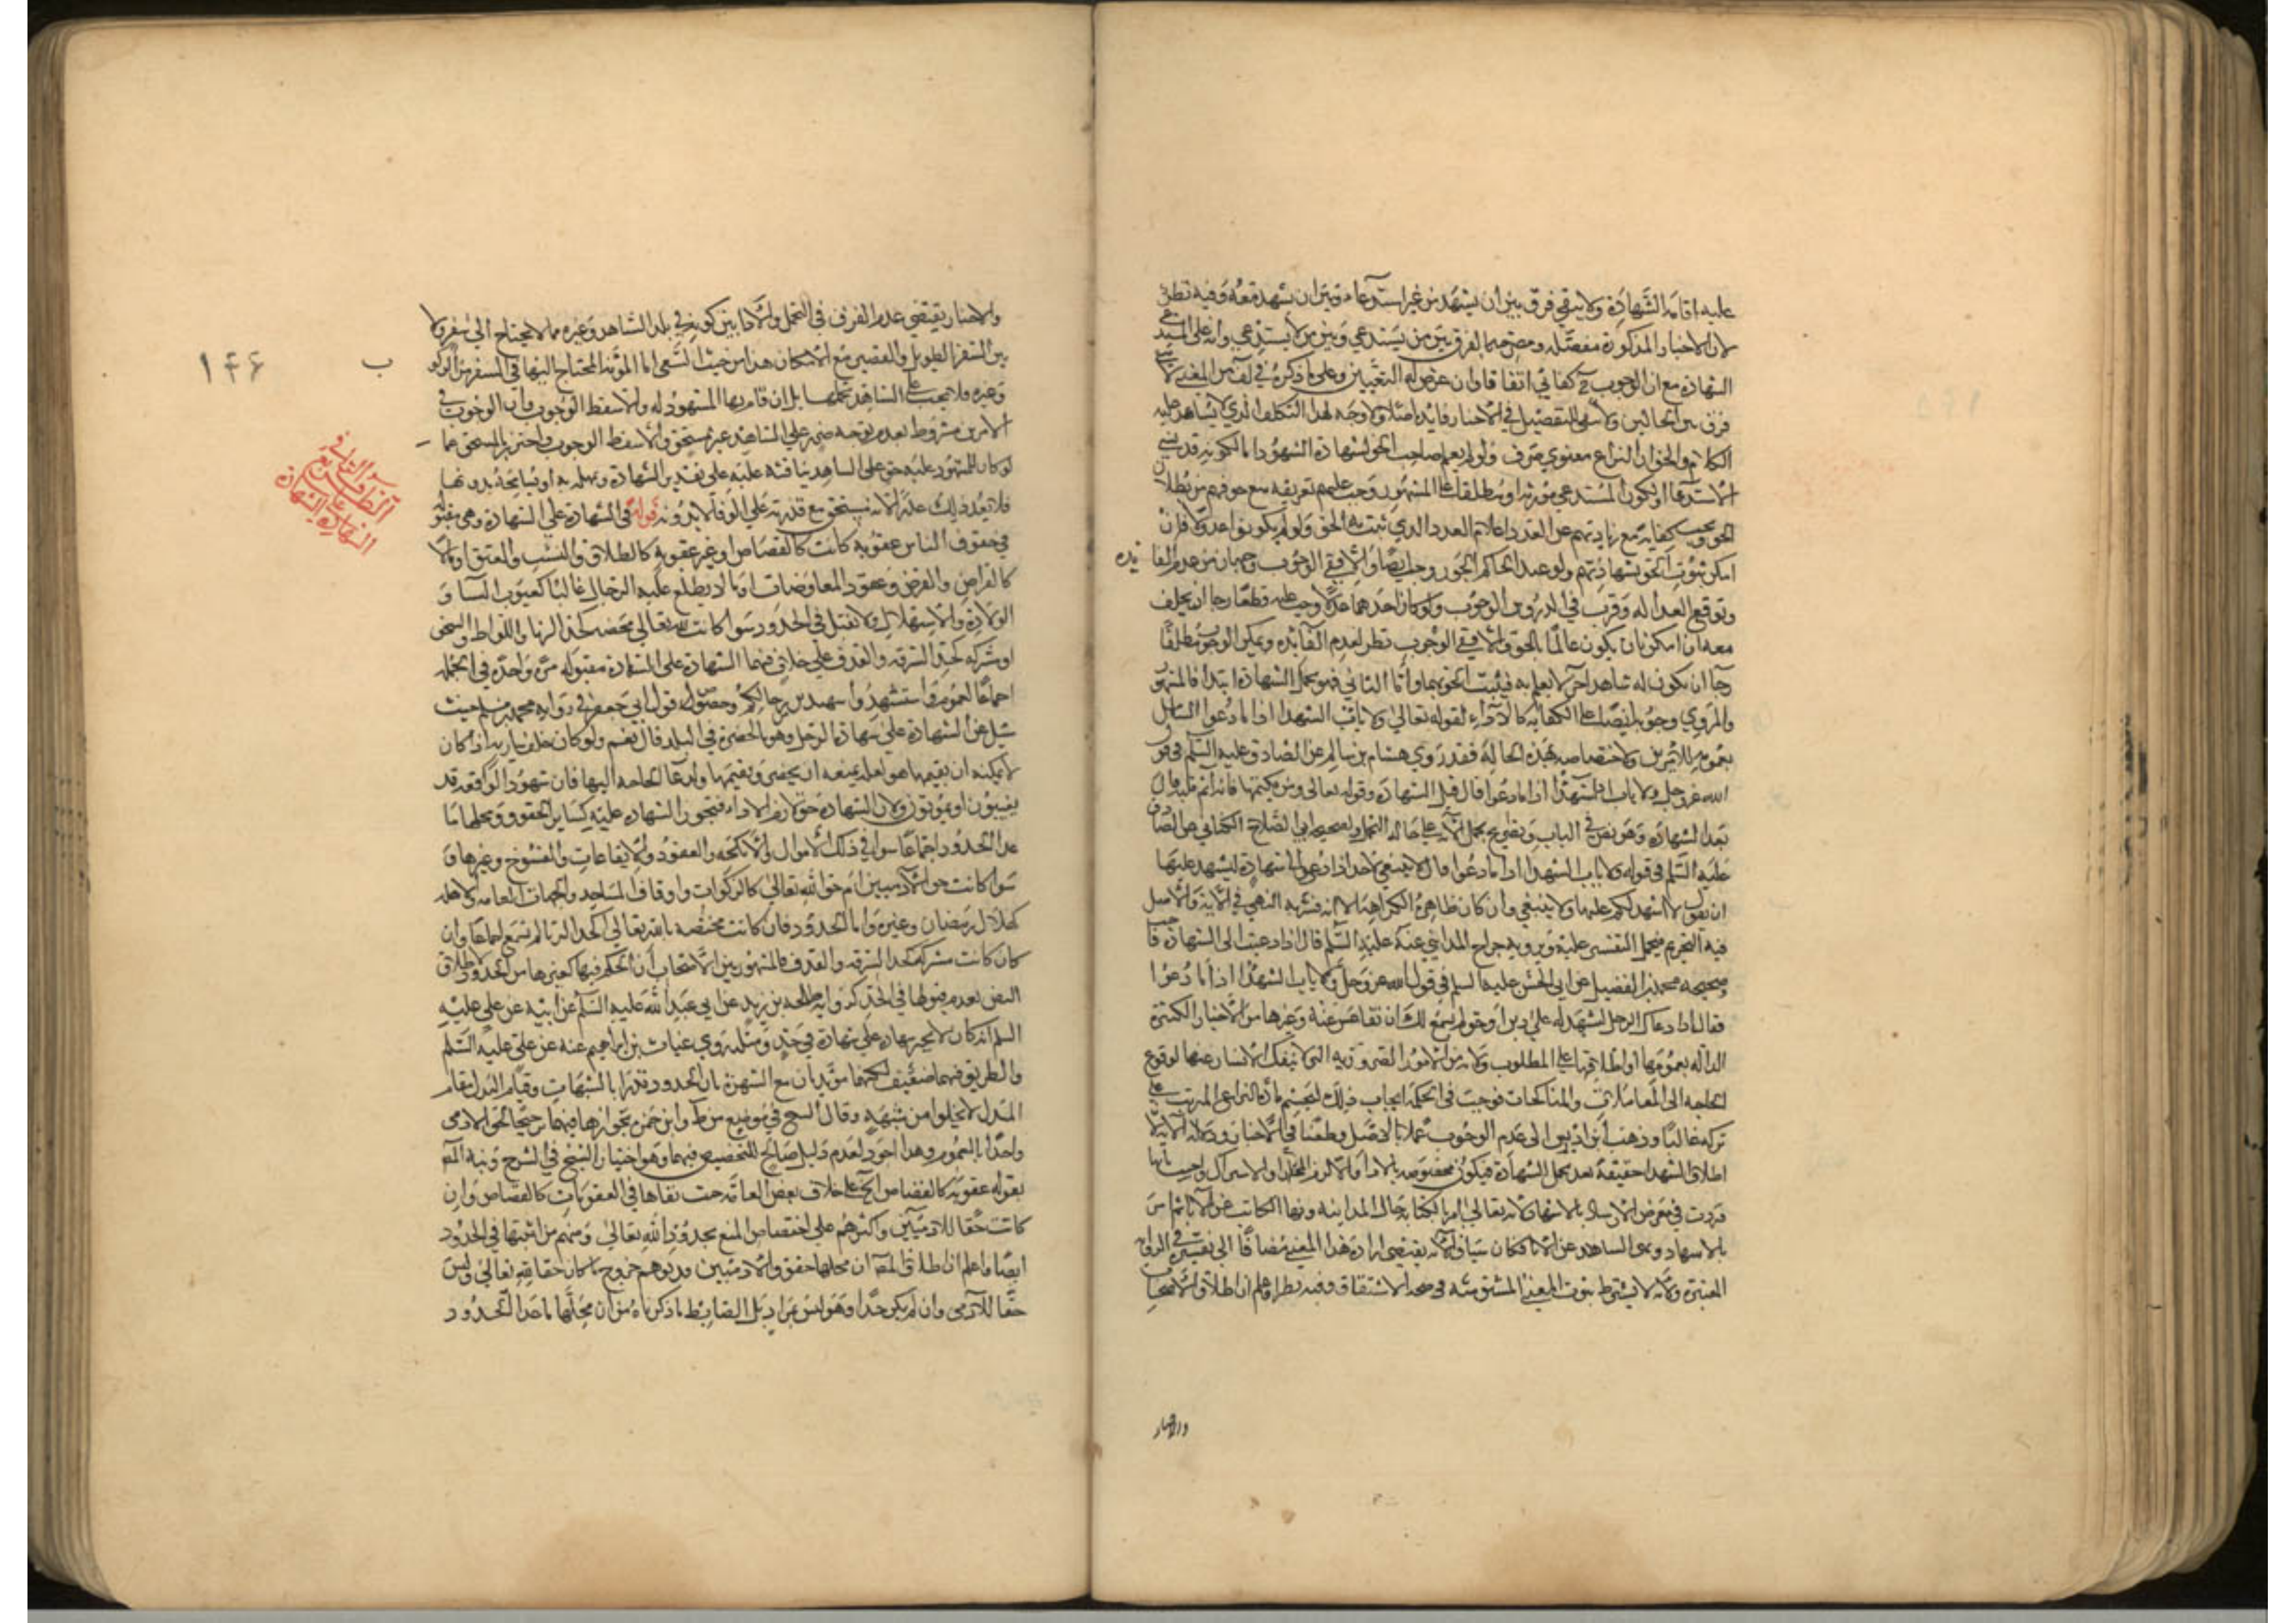 عليه اقامة الشهادة ولا يبقى فرق بين ان يشهد من غير استدعاء وبين ان يشهد معه وفيه نظر
لان الاخبار المذكورة مفصلة ومصرحة بالفرق بين من يستدعي وبين من لا يستدعي وانه على
الشهادة مع ان الوجوب كفائي اتفاقا وان عرض له التعيين وعلى ما ذكره في لف من المعنى لا
فرق بين الحالين ولا للتفصيل في الاخبار فايدة اصلا ولا وجه لهذا التكلف الذي لا يساعد عليه
الكلام والحق ان النزاع معنوي صرف ولو لم يعلم صاحب الحق بشهادة الشهود اما لكونه قد نسي
الاستدعا او لكون المستدعي مورثه او مطلقا على المشهور وجب عليهم تعريفه مع خوفهم من بطلان
الحق وجوب كفاية مع زيادتهم عن العدد اعلام العدد الذي يثبت به الحق ولو لم يكونوا عدولا فان
امكن ثبوت الحق بشهادتهم ولو عند الحاكم الجور وجب ايضا والا ففي الوجوب وجهان من عدم الفا يده
وتوقع العدالة وقرب في الدروس الوجوب ولو كان احدهما عدلا وجب عليه قطعا رجا ان يحلف
معه ان امكن بان يكون عالما بالحق والا ففي الوجوب نظر لعدم الفائدة ويمكن الوجوب مطلقا
رجا ان يكون له شاهد اخر لا يعلم به فيثبت الحق بهما واما الثاني فهو تحمل الشهادة ابتدا فالمشهور
والمروي وجوبه ايضا على الكفاية كالاداء لقوله تعالى ولا ياب الشهدا اذا ما دعوا الشامل
بعمومه للامرين ولاختصاصه بهذه الحالة فقد روى هشام بن سالم عن الصادق عليه السلم في قول
الله عز وجل ولا ياب الشهدا اذا ما دعوا قال قبل الشهادة وقوله تعالى ومن يكتمها فانه اثم قلبه قال
بعد الشهادة وهو نص في الباب
عليه السلم في قوله ولا ياب الشهدا اذا ما دعوا قال لا ينبغي لاحد اذا دعي الى شهادة ليشهد عليها
ان يقول لا اشهد لكم عليها ولا ينبغي وان كان ظاهره الكراهة الا انه فسر به النهي في الاية والاصل
فيه التحريم فيحمل التفسير عليه ويرويه جراح المدايني عنه عليه السلم قال اذا دعيت الى الشهادة فاجب
وصحيحة محمد بن الفضيل عن ابي الحسن عليه السلم في قول الله عز وجل ولا ياب الشهدا اذا ما دعوا
فقال اذا دعاك الرجل لتشهد له على دين او حق لم ينبغ لك ان تقاعس عنه وغيرها من الاخبار الكثيرة
الدالة بعمومها او اطلاقها على المطلوب ولانه من الامور الضرورية التي لا ينفك الانسان عنها لوقوع
الحاجة الى المعاملات والمناكحات فوجب في الحكمة ايجاب ذلك لتحسم مادة النزاع المترتب على
تركه غالبا وذهب ابن ادريس الى عدم الوجوب عملا بالاصل وطعنا في الاخبار ودلالة الاية لان
اطلاق الشهدا حقيقة بعد تحمل الشهادة فيكون مخصوصه بالاداء والا لزم المجاز او الاشتراك واجيب بانها
وردت في معرض الارشاد بالاشهاد لانه تعالى امر بالكتابة حال المداينة ونهى الكاتب عن الابا ثم امر
بالاشهاد ونهى الشاهد عن الابا فكان سياق الاية يقتضي ارادة هذا المعنى مضافا الى تفسيره في الرواية
المعتبرة ولانه لا يشترط ثبوت المعنى المشتق منه في صحة الاشتقاق وفيه نظر واعلم ان اطلاق الاصحاب
والاخبار
والاخبار يقتضي عدم الفرق في التحمل والادا بين كونه في بلد الشاهد وغيره مما لا يحتاج الى سفر ولا
بين السفر الطويل والقصير مع الامكان هذا من حيث السعي اما المؤنة المحتاج اليها في السفر من الركوب
وغيره فلا يجب على الشاهد تحملها بل ان قام بها المشهود له والا سقط الوجوب فان الوجوب في
الامرين مشروط بعدم توجه ضرر على الشاهد غير مستحق والا سقط الوجوب واحترز بالمستحق عما
لو كان للمشهود عليه حق على الشاهد يناقشه عليه على تقدير الشهادة ويمهله به او يسامحه بدونها
فلا يعد ذلك عذرا لانه مستحق مع قدرته على الوفا لا بدونه قوله في الشهادة على الشهادة وهي مقبولة
في حقوف الناس عقوبة كانت كالقصاص او غير عقوبة كالطلاق والنسب والعتق او مالا
كالقراض والقرض وعقود المعاوضات او ما لا يطلع عليه الرجال غالبا كعيوب النسا و
الولادة والاستهلال ولا تقبل في الحدود سوا كانت لله تعالى محضة كحد الزنا واللواط والسحق
او مشتركه كحد السرقة والقذف على خلاف فيهما الشهادة على الشهادة مقبوله مرة واحدة في الجملة
اجماعا لعموم واستشهدوا شهيدين من رجالكم وخصوص قول ابي جعفر في رواية محمد بن مسلم حيث
سئل عن الشهادة على شهادة الرجل وهو بالحضرة في البلد قال نعم ولو كان خلف سارية اذا كان
لا يمكنه ان يقيمها هو لعلة تمنعه ان يحضر ويقيمها ولدعا الحاجة اليها فان شهود الواقعة قد
يغيبون او يموتون ولان الشهادة حق لازم الاداء فتجوز الشهادة عليه كساير الحقوق ومحلها ما
عدا الحدود اجماعا سوا في ذلك الاموال والانكحة والعقود والايقاعات والفسوخ وغيرها و
سوا كانت حق الادميين ام حق الله تعالى كالزكوات واوقاف المساجد والجهات العامة والاهلة
كهلال رمضان وغيره واما الحدود فان كانت مختصة بالله تعالى كحد الزنا لم تسمع اجماعا وان
كان كانت مشتركة كحد السرقة والقذف فالمشهور بين الاصحاب ان الحكم فيها كغيرها من الحدود لاطلاق
النص بعدم قبولها في الحد كرواية طلحه بن زيد عن ابي عبد الله عليه السلم عن ابيه عن علي عليه
السلم انه كان لا يجيز شهادة على شهادة في حد ومثله روى غياث بن ابراهيم عنه عن علي عليه السلم
والطريق فيهما ضعيف لكنهما مؤيدان مع الشهرة بان الحدود تدرا بالشبهات وقيام البدل مقام
المبدل لا يخلوا من شبهة وقال الشيخ في موضع من ط وابن حمزة بجوازها فيهما ترجيحا لحق الادمى
واخذا بالعموم وهذا اجود لعدم دليل صالح للتخصيص فيهما وهو اختيار الشيخ في الشرح ونبه المص
بقوله عقوبة كالقصاص الخ على خلاف بعض العامة حيث نفاها في العقوبات كالقصاص وان
كانت حقا للادميين واكثرهم على اختصاص المنع بحدود الله تعالى ومنهم من اثبتها في الحدود
ايضا واعلم ان اطلاق المص ان محلها حقوق الادميين قد يوهم خروج ما كان حقا لله تعالى وليس
حقا للادمى وان لم يكن حدا وهو ليس بمراد بل الضابط ما ذكرناه من ان محلها ما عدا الحدود
ب
١٤۶
الطرف
الشهادة على الشهادة